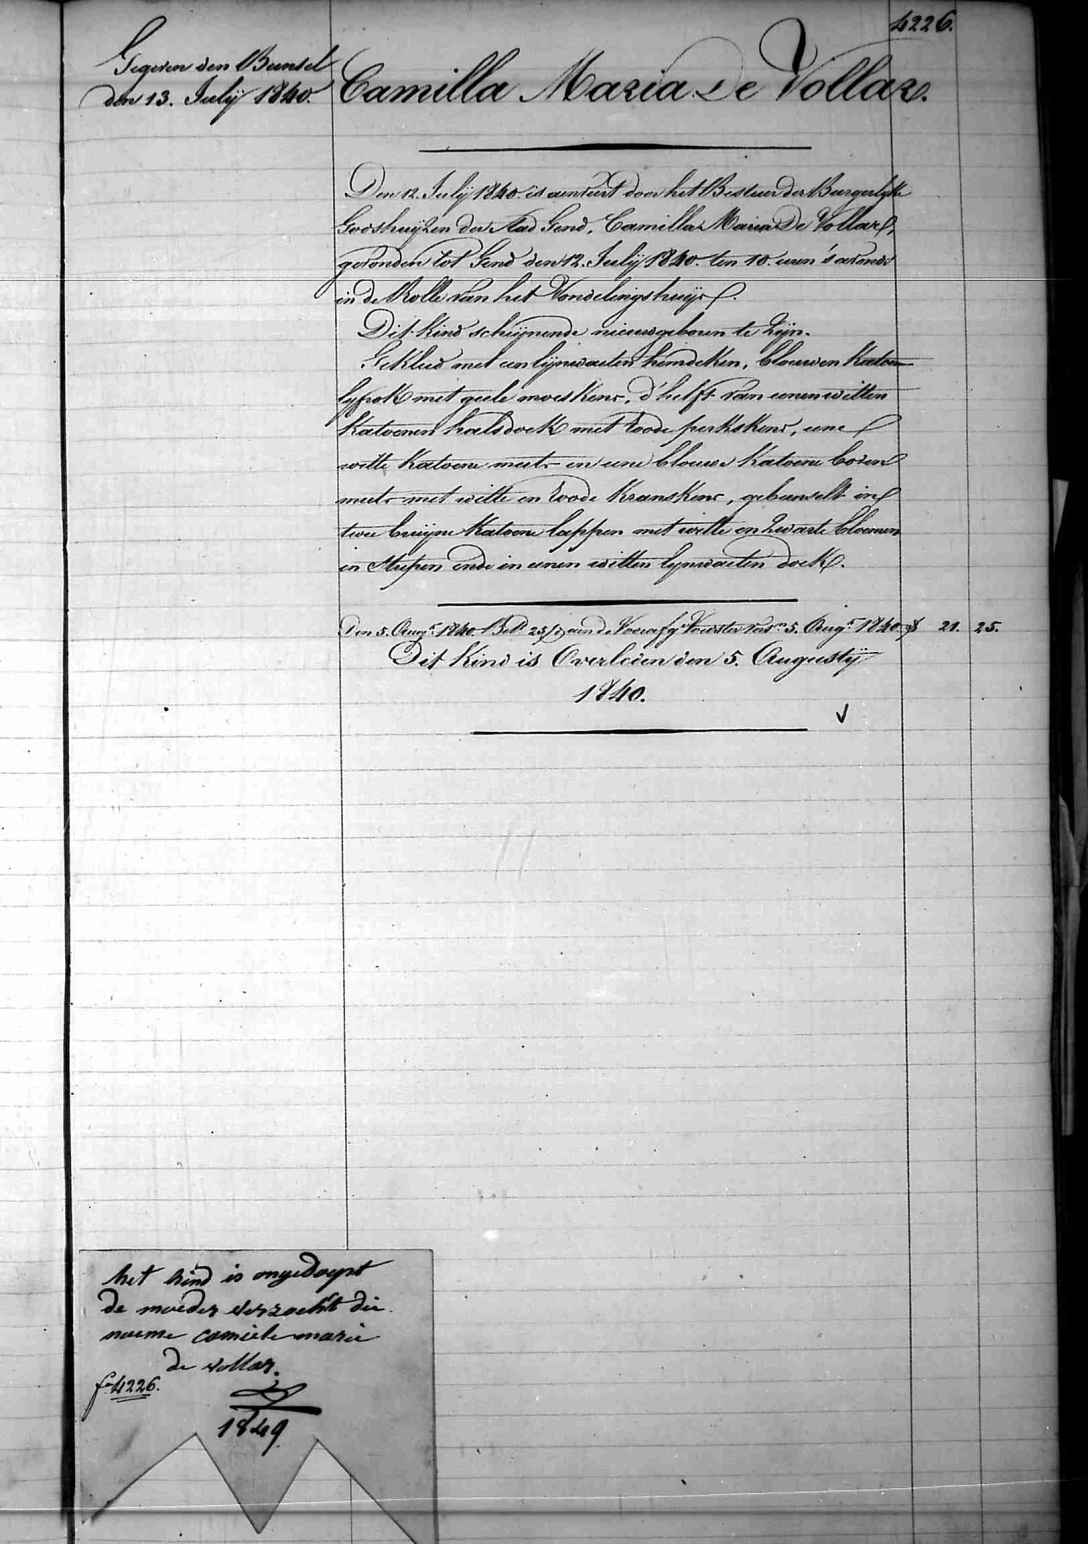 4226.
Gegeven den Bunsel
den 13. Julij 1840.
Camilla Maria De Vollar.
Den 12. Julij 1840. is aenveirt door het Bestuer der Burgerlyke
Godshuijzen der Stad Gend, Camilla Maria De Vollar,
gevonden tot Gend den 12. Julij 1840. ten 10. uren 's avonds
in de Rolle van het Vondelingshuijs.
Dit kind schijnende nieuwgeboren te Zijn.
Gekleed met een lijnwaeten hemdeken, blouwen katoen
lyfrok met geele moeskens, d'helft van eenen witten
katoenen halsdoek met roode perkskens, eene
witte katoene muts en eene blouwe katoene boven
muts met witte en roode kranskens, gebunselt in
twee bruijne katoene lappen met witte en zwarte bloemen
in strepen ende in eenen witten lynwaeten doek.
Den 5. Augt. 1840. Bet. 25/ aen de Voedster 5. Augt. 1840. 21. 25.
Dit Kind is Overleden den 5. Augustij
1840.
het kind is ongedoept
de moeder verzocht die
naeme camiele marie
de vollar.
fo 4226.
1849